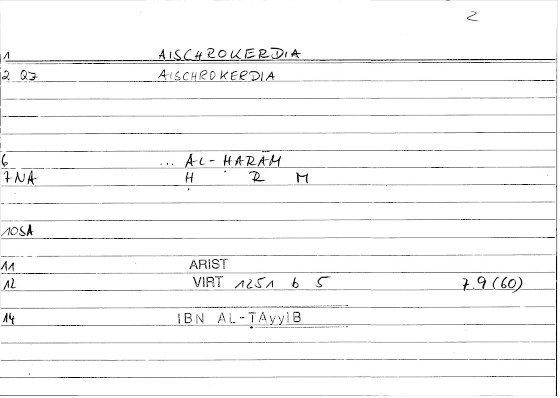 2
1 AISCHROKERDIA
2 QZ AISCHROKERDIA
6 ... AL-ḤARAM
7NA Ḥ R M
10SA
11 ARIST
12 VIRT 1251 b 5 7.9(60)
14 IBN AL-ṬAyyIB